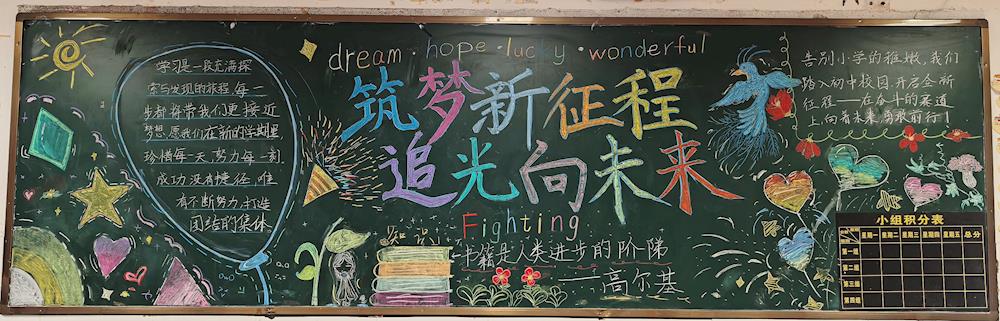 dream · hope · lucky · wonderful
筑梦新征程
追光向未来
Fighting
学习是一段充满探
索与发现的旅程 每一
步都将带我们更接近
梦想.愿我们在新的学期里
珍惜每一天.努力每一刻.
成功没有捷径.唯
有不断努力.打造
团结的集体.
知识
书籍是人类进步的阶梯
——高尔基
告别小学的稚嫩,我们
踏入初中校园.开启全新
征程——在奋斗的赛道
上.向着未来,勇敢前行!
小组积分表
星期一 星期二 星期三 星期四 星期五 总分
第一组
第二组
第三组
第四组